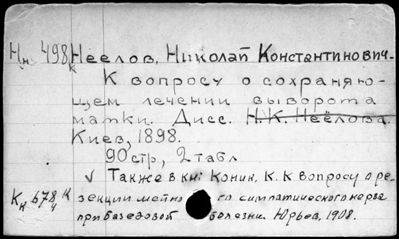 Нн 498к Неелов, Николай Константинович.
К вопросу о сохраняю-
щем лечении выворота
матки. Дисс. Н.К. Неёлова.
Киев, 1898.
90 стр, 2 табл
√ Также в кн: Конин, К. К вопросу о ре-
Кн 678/4 к зекции шейного симпатического нерва
при базедовой болезни. Юрьев, 1908.